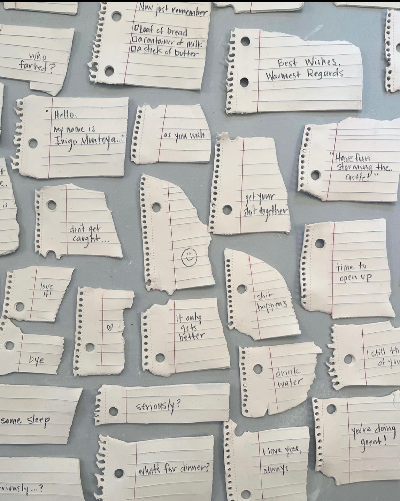 Now just remember
Loaf of bread
a container of milk
a stick of butter
who
farted?
Best Wishes,
Warmest Regards
"Hello.
my name is
Inigo Montoya..."
as you wish
"Have fun
storming the
get your
shit together
don't get
caught...
time to
open up
love
it!
shit
happens
it only
gets
better
bye
I still th
of you
drink
water
some sleep
seriously?
you're doing
great!
what's for dinner?
I love you,
always
eriously...?